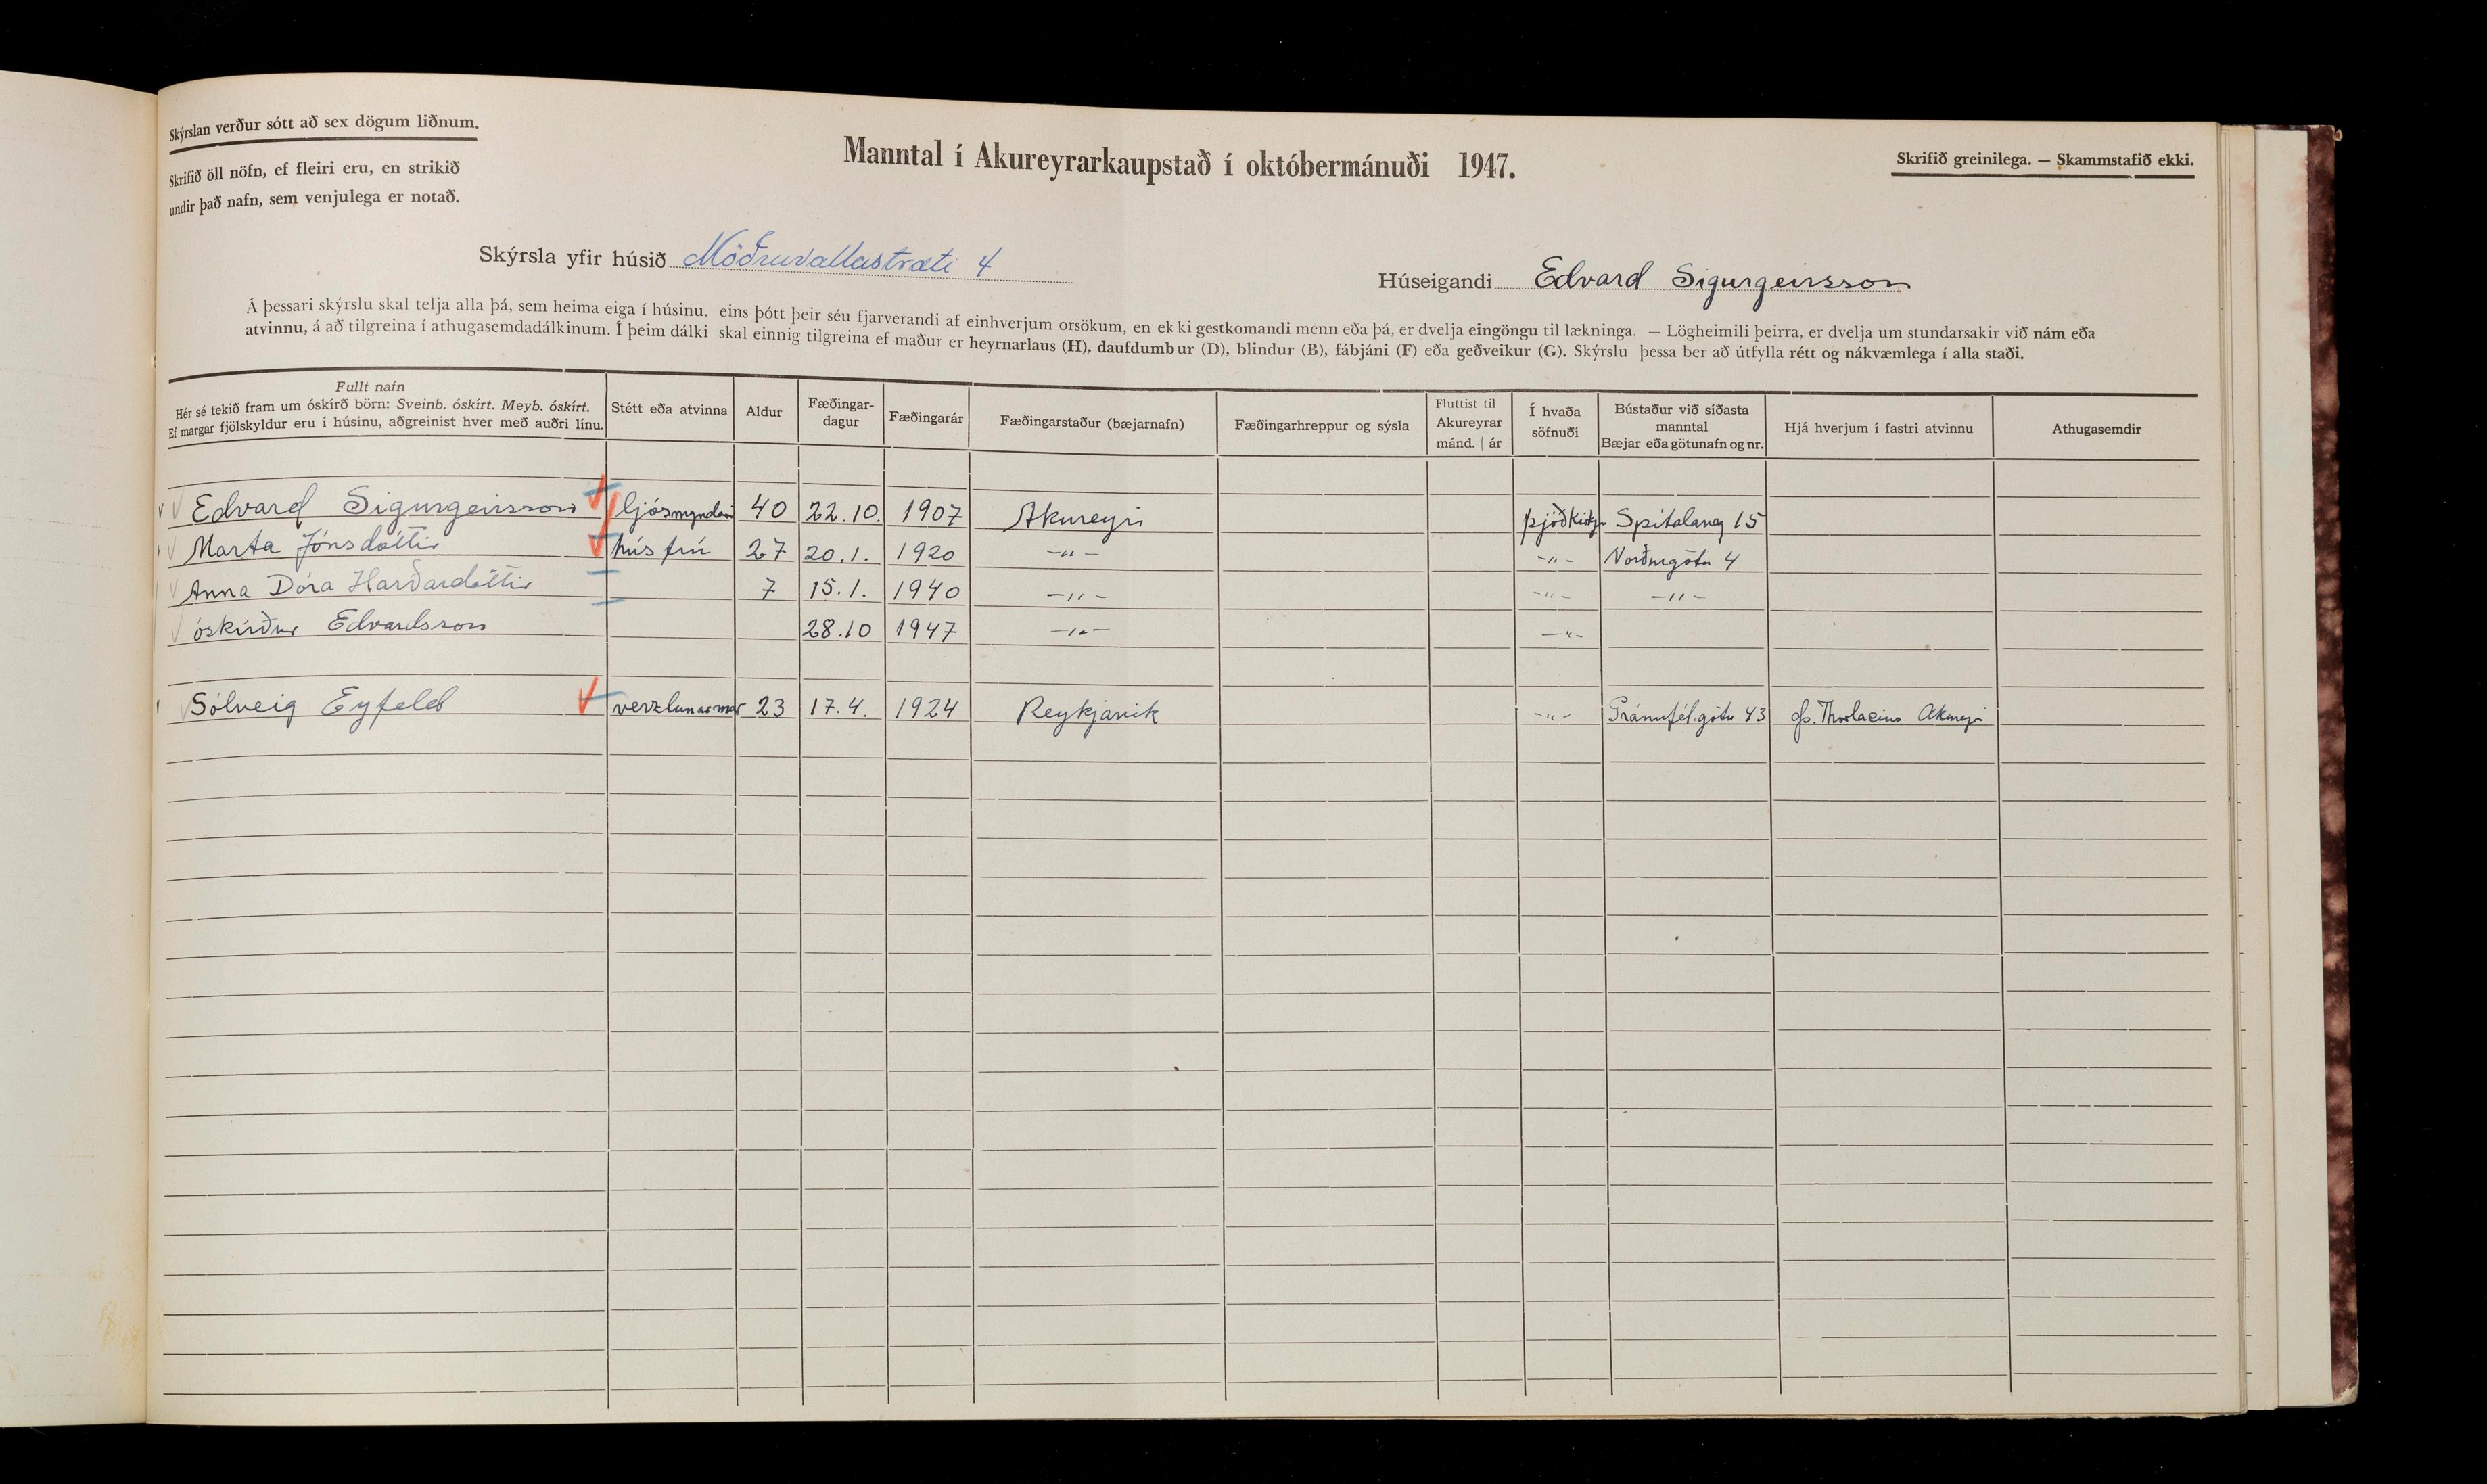 Skýrslan verður sótt að sex dögum liðnum.
Skrifið öll nöfn, ef fleiri eru, en strikið
undir það nafn, sem venjulega er notað.
Manntal í Akureyrarkaupstað í októbermánuði 1947.
Skrifið greinilega. — Skammstafið ekki.
Skýrsla yfir húsið Möðruvallastræti 4
Húseigandi Edvard Sigurgeirsson
Á þessari skýrslu skal telja alla þá, sem heima eiga í húsinu, eins þótt þeir séu fjarverandi af einhverjum orsökum, en ekki gestkomandi menn eða þá, er dvelja eingöngu til lækninga. — Lögheimili þeirra, er dvelja um stundarsakir við nám eða
atvinnu, á að tilgreina í athugasemdadálkinum. Í þeim dálki skal einnig tilgreina ef maður er heyrnarlaus (H), daufdumbur (D), blindur (B), fábjáni (F) eða geðveikur (G). Skýrslu þessa ber að útfylla rétt og nákvæmlega í alla staði.
Fullt nafn
Hér sé tekið fram um óskírð börn: Sveinb. óskírt. Meyb. óskírt.
Ef margar fjölskyldur eru í húsinu, aðgreinist hver með auðri línu.
Stétt eða atvinna
Aldur
Fæðingar-
dagur
Fæðingarár
Fæðingarstaður (bæjarnafn)
Fæðingarhreppur og sýsla
Fluttist til
Akureyrar
mánd. | ár
Í hvaða
söfnuði
Bústaður við síðasta
manntal
Bæjar eða götunafn og nr.
Hjá hverjum í fastri atvinnu
Athugasemdir
Edvard Sigurgeirsson ljósmyndari 40 22.10. 1907 Akureyri þjóðkirkj Spítalaveg 15
Marta Jónsdóttir húsfrú 27 20.1. 1920 —"— —"— Norðurgötu 4
Anna Dóra Harðardóttir 7 15.1. 1940 —"— —"— —"—
óskírður Edvardsson 28.10 1947 —"— —"—
Sólveig Eyfeld verzlunarmær 23 17.4. 1924 Reykjavik —"— Gránufél.götu 43 Thorlacius Akureyri